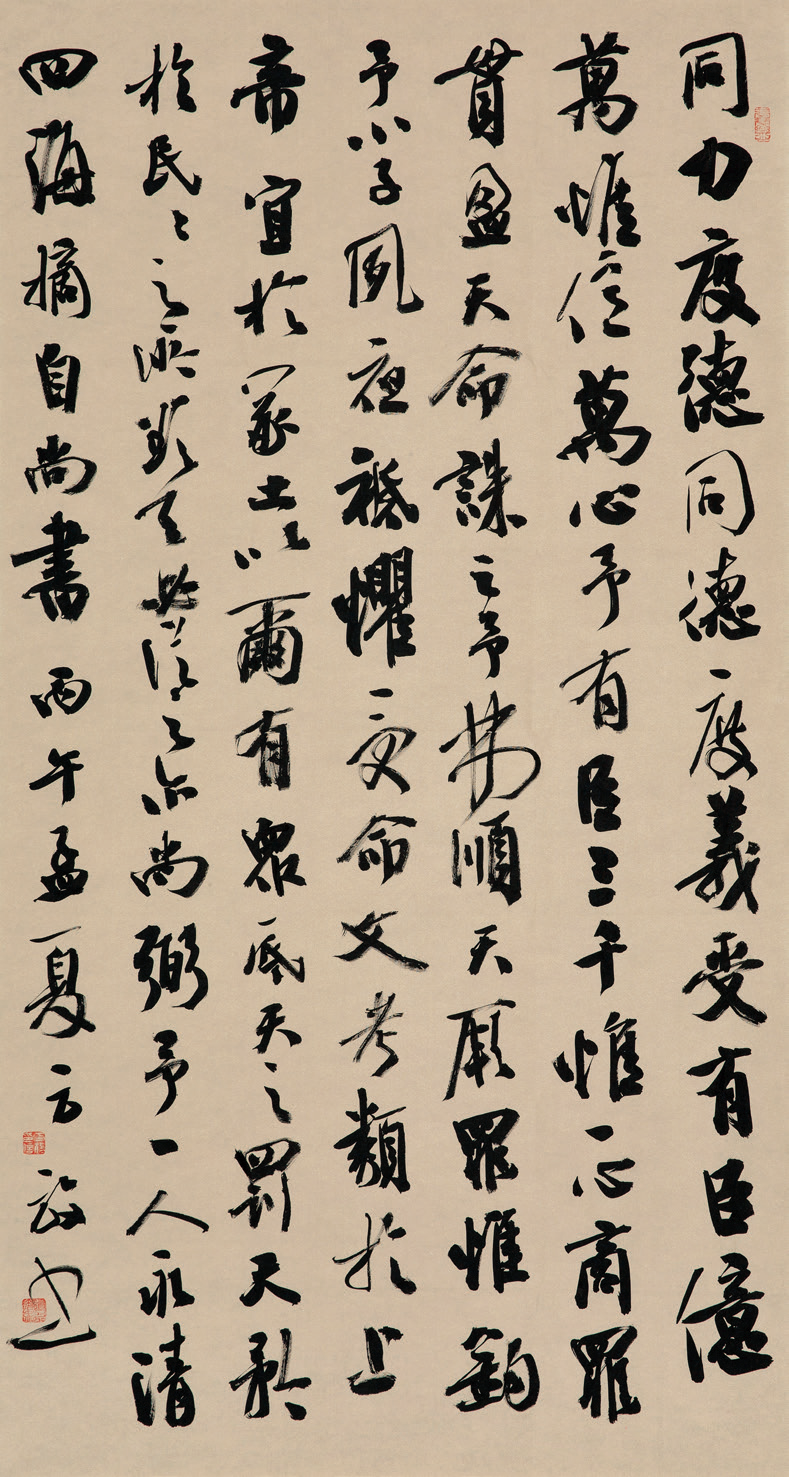 同力度德同德度義受有臣億
萬惟億萬心予有臣三千惟一心商罪
貫盈天命誅之予弗順天厥罪惟鈞
予小子夙夜祗懼受命文考類於上
帝宜於冢土以爾有眾底天之罰天矜
於民々之所欲天必從之尔尚弼予一人永清
四海摘自尚書 丙午孟夏 書